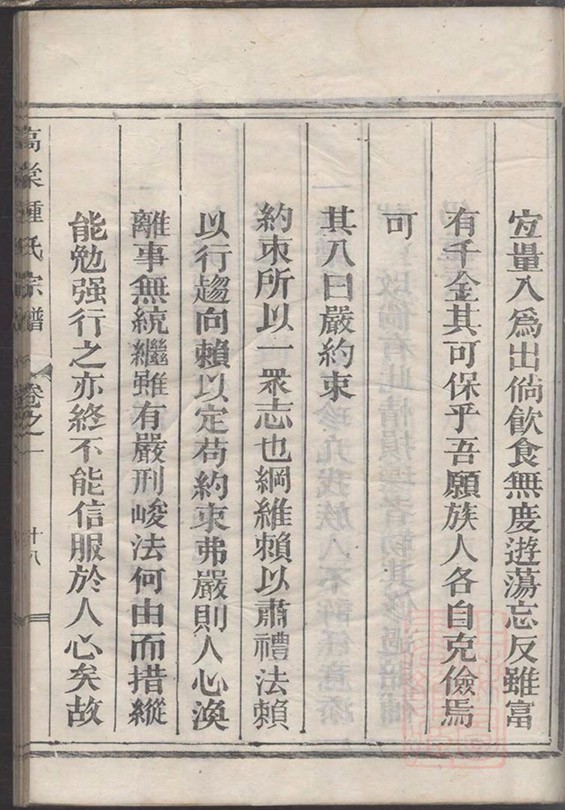 宜量入爲出倘飲食無度遊蕩忘反雖富
有千金其可保乎吾願族人各自克儉焉
可
其八曰嚴約束
約束所以一眾志也綱維賴以肅禮法賴
以行趨向賴以定苟約束弗嚴則人心渙
離事無統繼雖有嚴刑峻法何由而措縱
能勉强行之亦終不能信服於人心矣故
高棠鍾氏宗譜
卷之一
十八